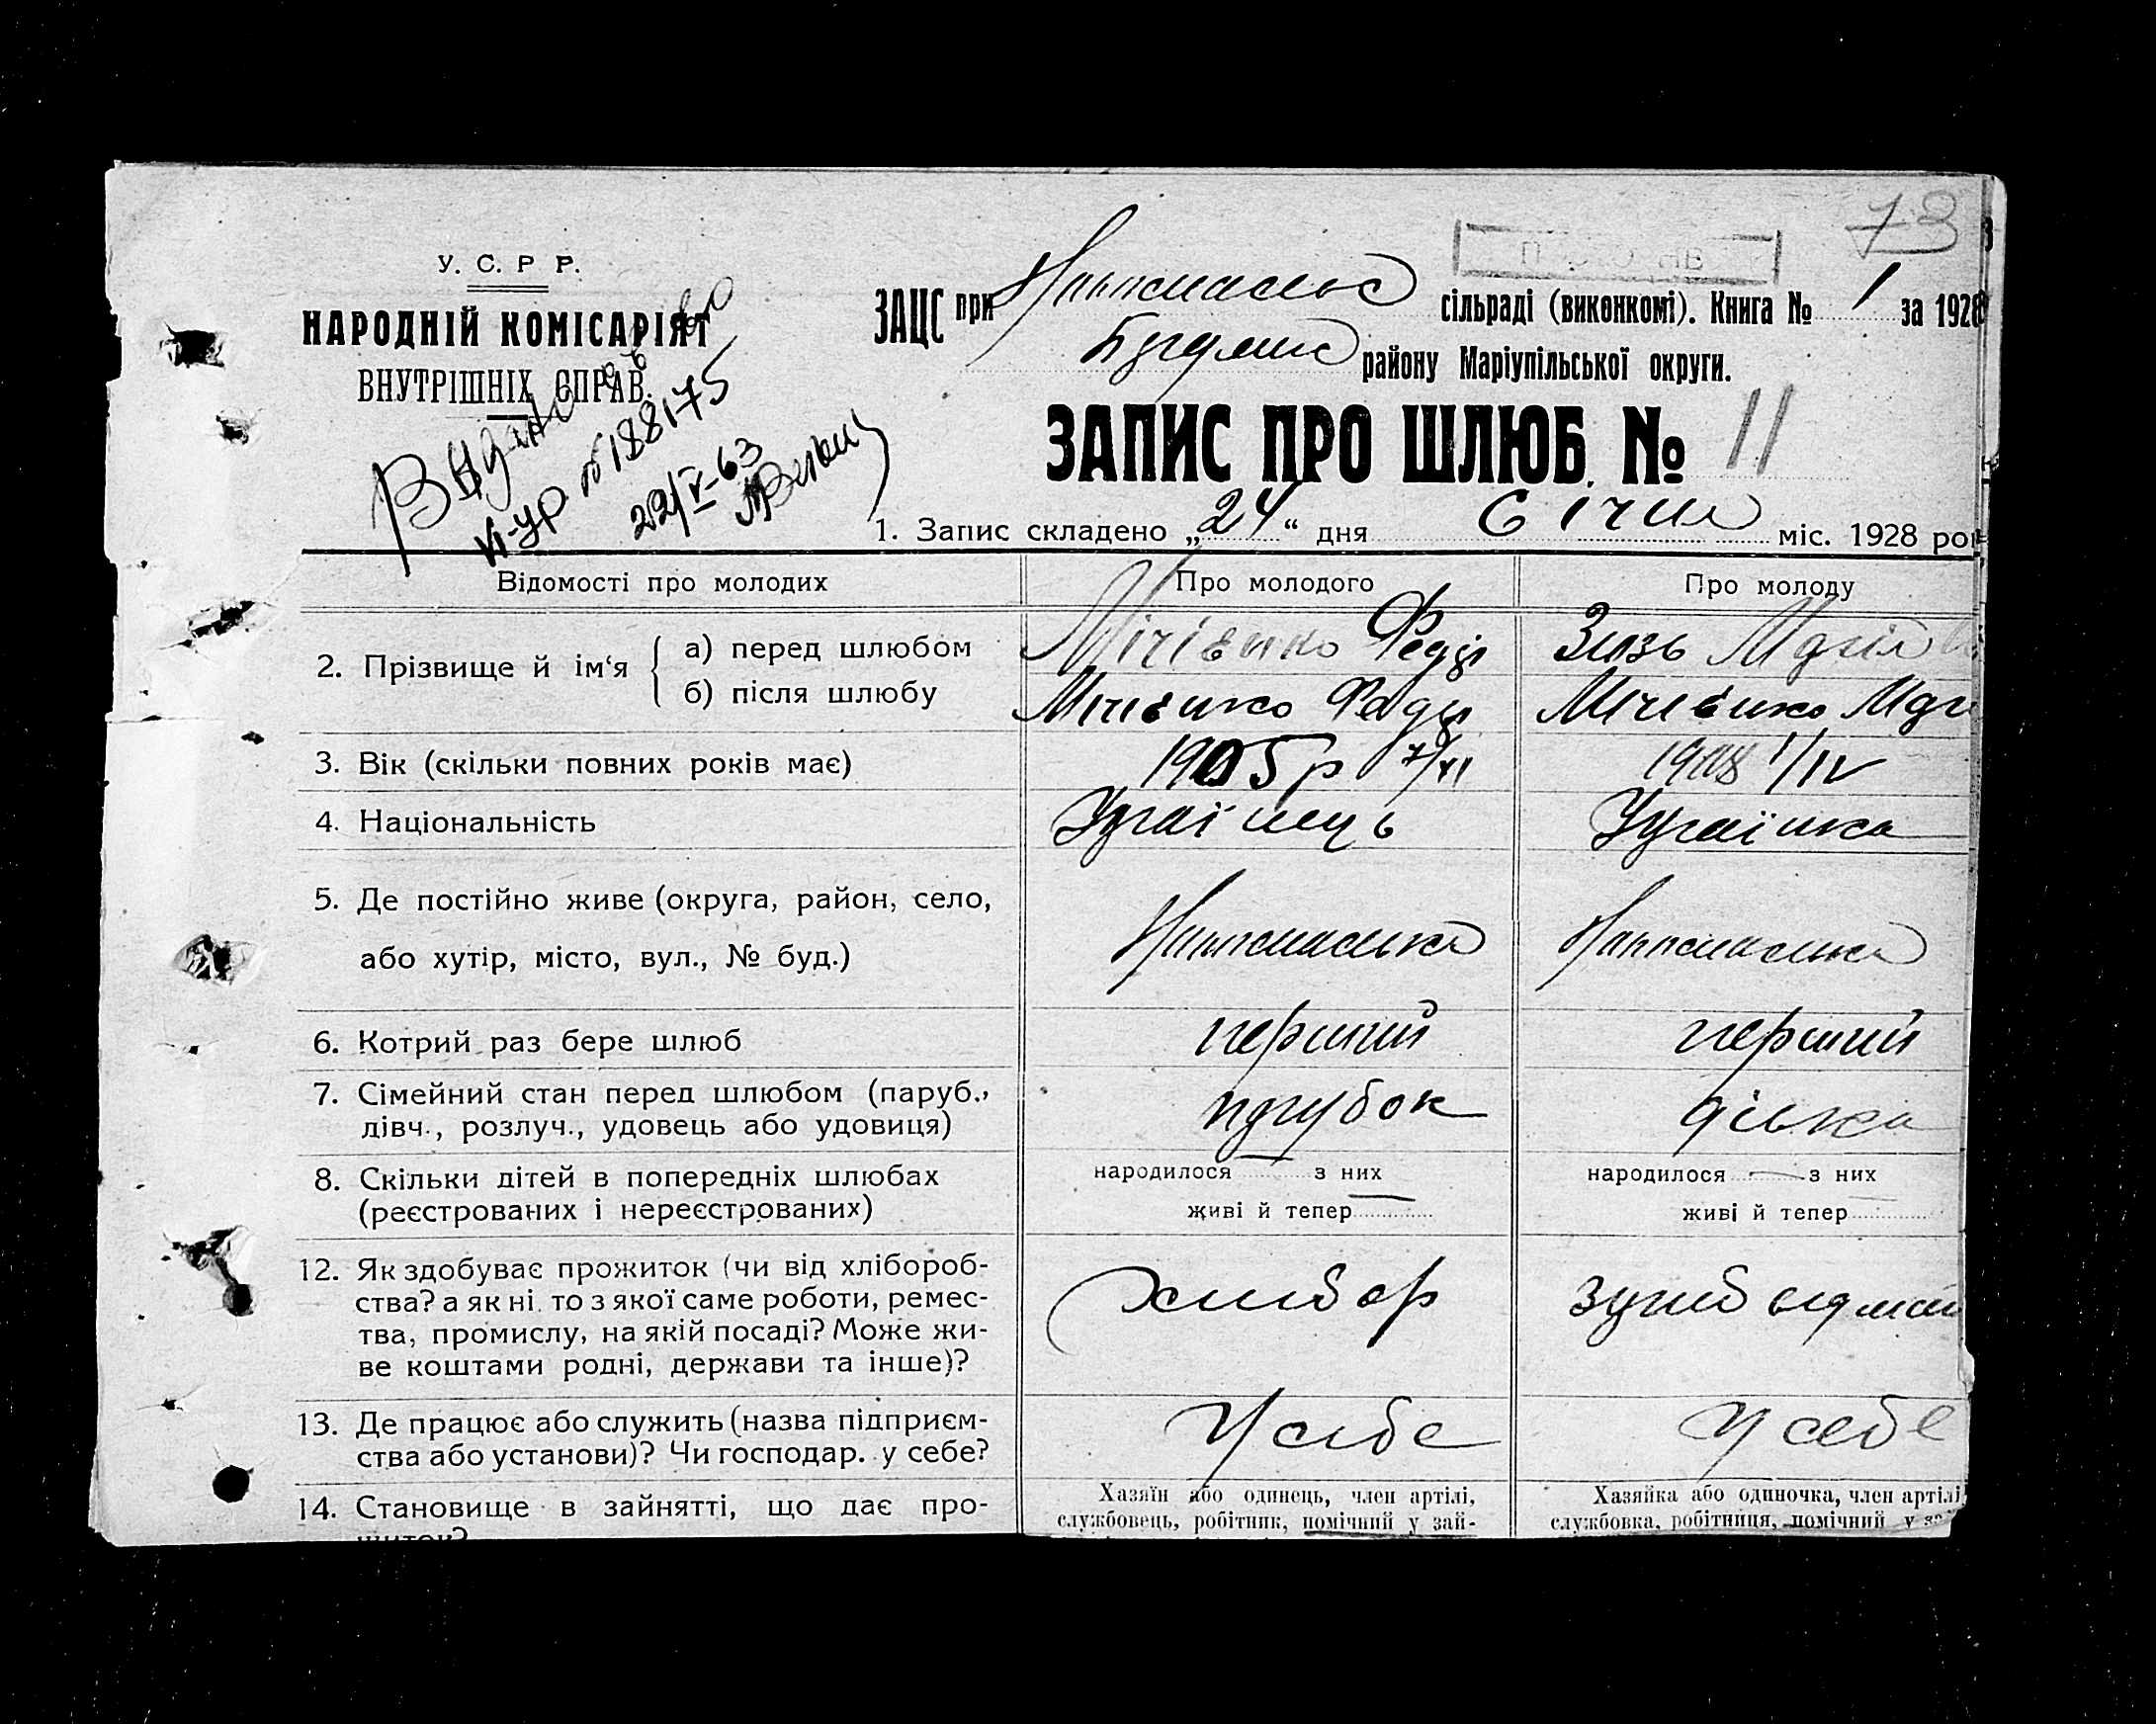 73
У. С. Р. Р.
НАРОДНІЙ КОМІСАРІЯТ
ВНУТРІШНІХ СПРАВ.
Видано
VI-УР № 188175
22/V-63
ЗАЦС при сільраді (виконкомі). Книга № 1 за 1928
району Маріупільської округи.
ЗАПИС ПРО ШЛЮБ. № 11
1. Запис складено „24“ дня Січня міс. 1928 ро
Відомості про молодих Про молодого Про молоду
2. Прізвище й ім‘я
а) перед шлюбом Мічієнко Федір
б) після шлюбу Мічієнко Федір Мічієнко
3. Вік (скільки повних років має) 1905 р 7/VI 1908 1/IV
4. Національність Українець Українка
5. Де постійно живе (округа, район, село,
або хутір, місто, вул., № буд.)
6. Котрий раз бере шлюб перший перший
7. Сімейний стан перед шлюбом (паруб., парубок дівка
дівч., розлуч., удовець або удовиця)
8. Скільки дітей в попередніх шлюбах народилося з них народилося з них
(реєстрованих і нереєстрованих) живі й тепер живі й тепер
12. Як здобуває прожиток (чи від хлібороб-
ства? а як ні, то з якої саме роботи, ремес- хлібор
тва, промислу, на якій посаді? Може жи-
ве коштами родні, держави та інше)?
13. Де працює або служить (назва підприєм- У себе У себе
ства або установи)? Чи господар. у себе?
14. Становище в зайнятті, що дає про- Хазяїн або одинець, член артілі, Хазяйка або одиночка, член артілі,
житок? службовець, робітник, помічний у зай- службовка, робітниця, помічний у за